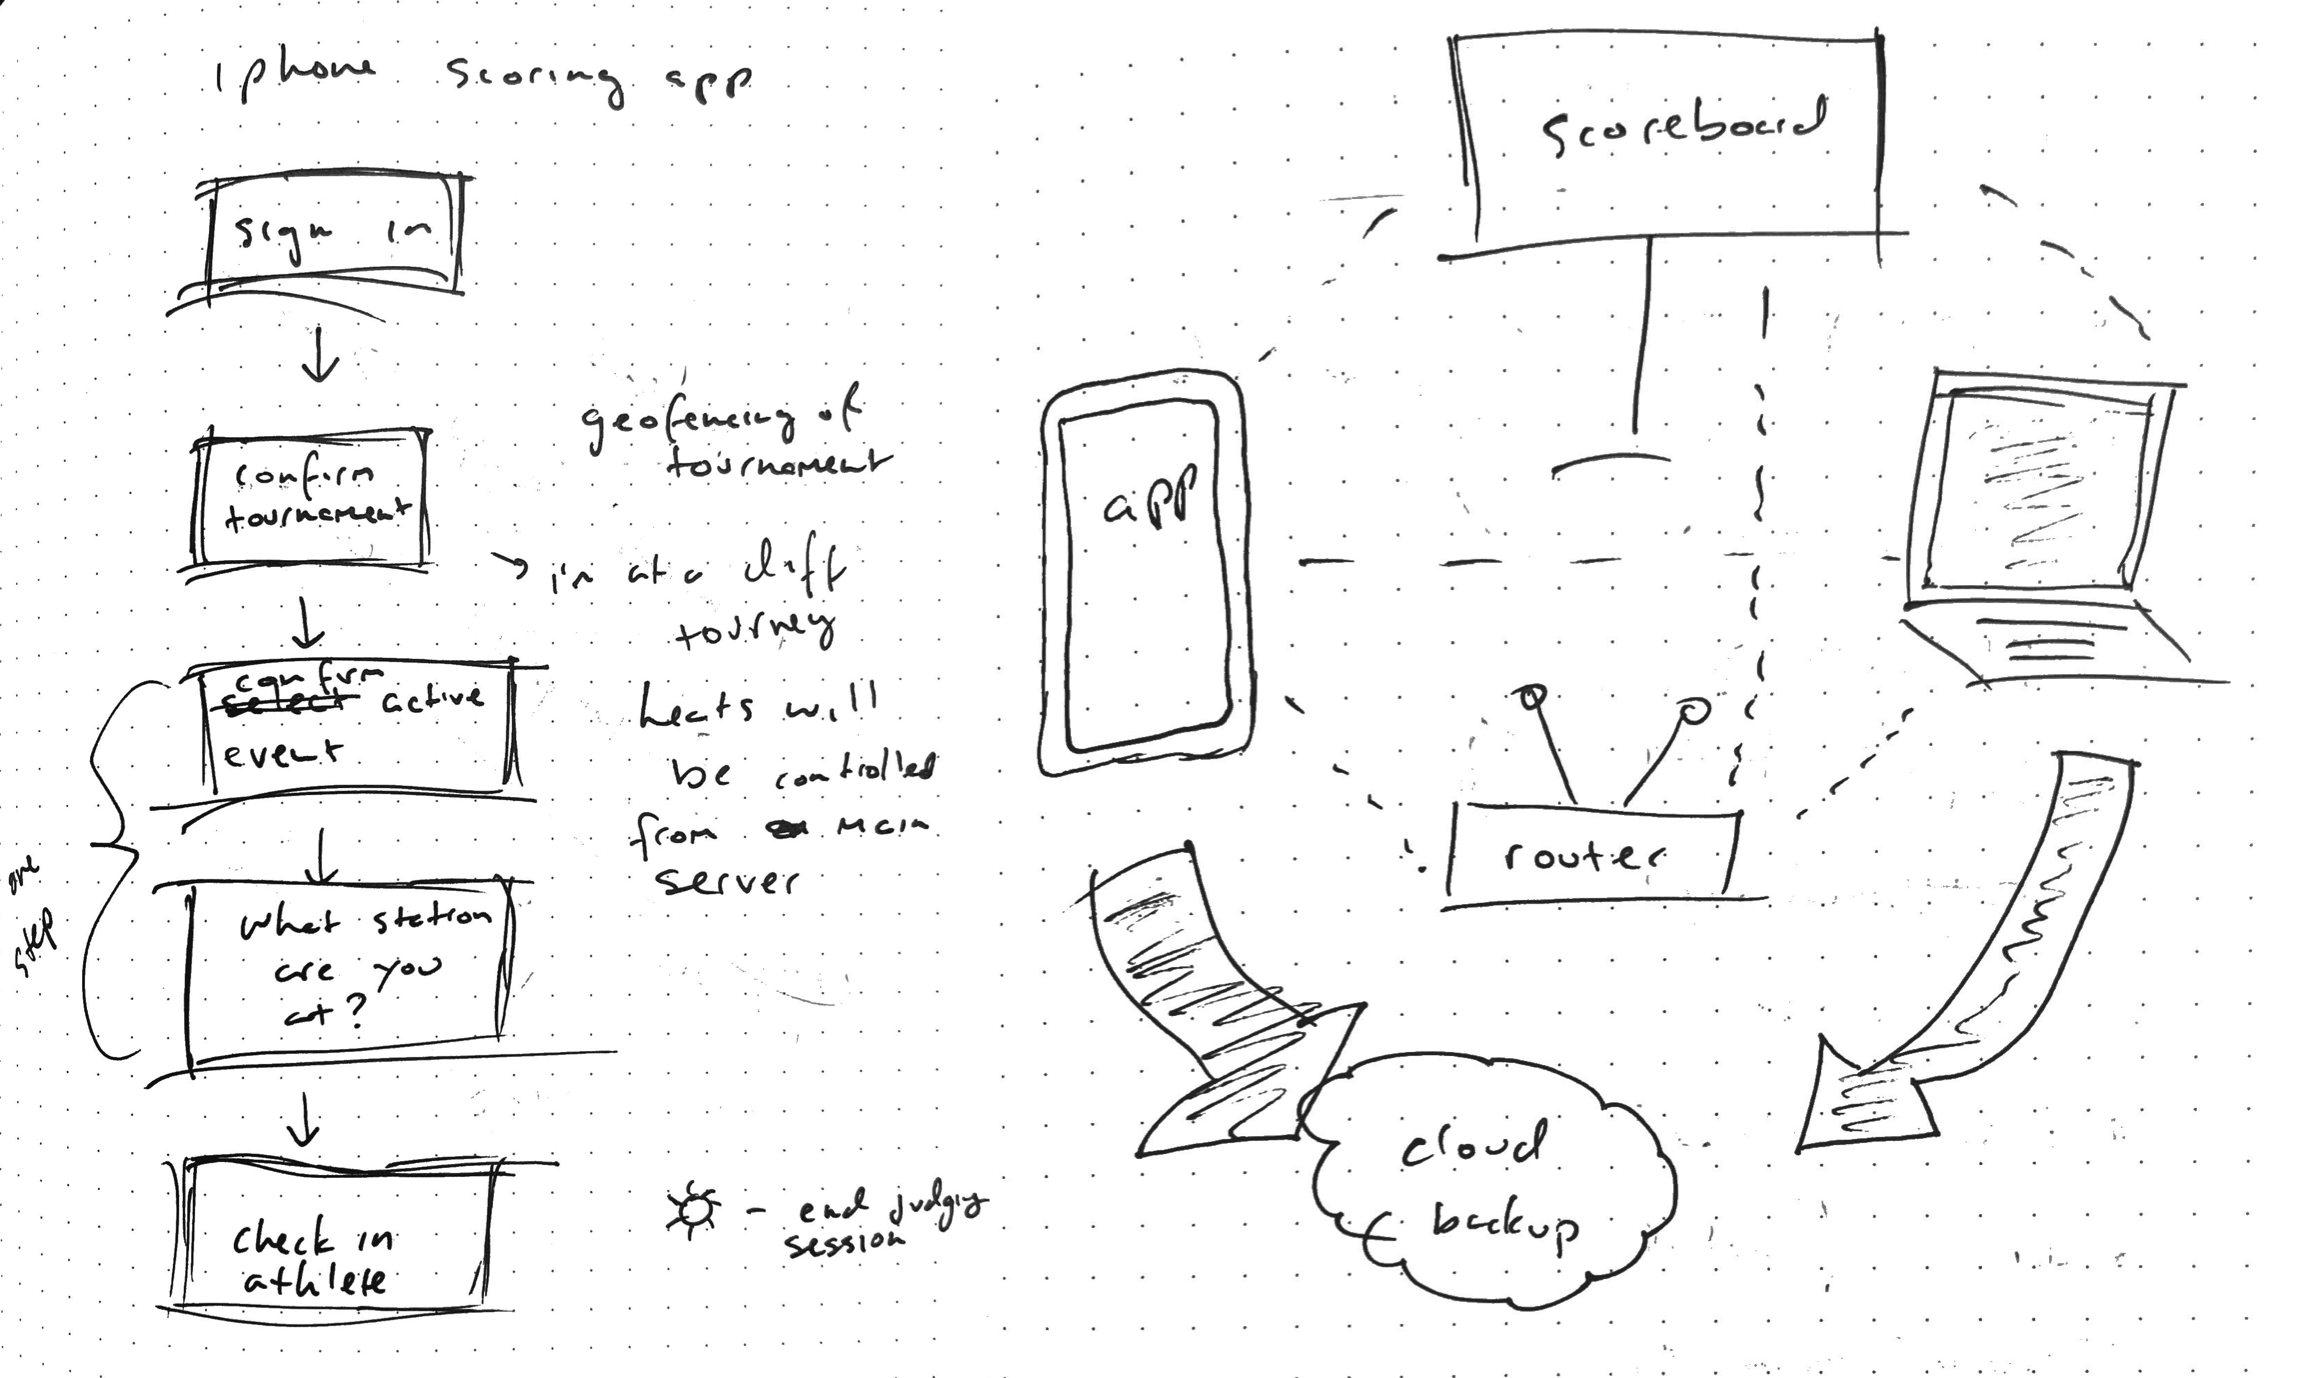 iphone scoring app
sign in
confirm
tournament
geofencing of
tournament
i'm at a diff
tourney
confirm
select active
event
heats will
be controlled
from main
server
one
step
what station
are you
at?
check in
athlete
- end judging
session
scoreboard
app
router
cloud
backup